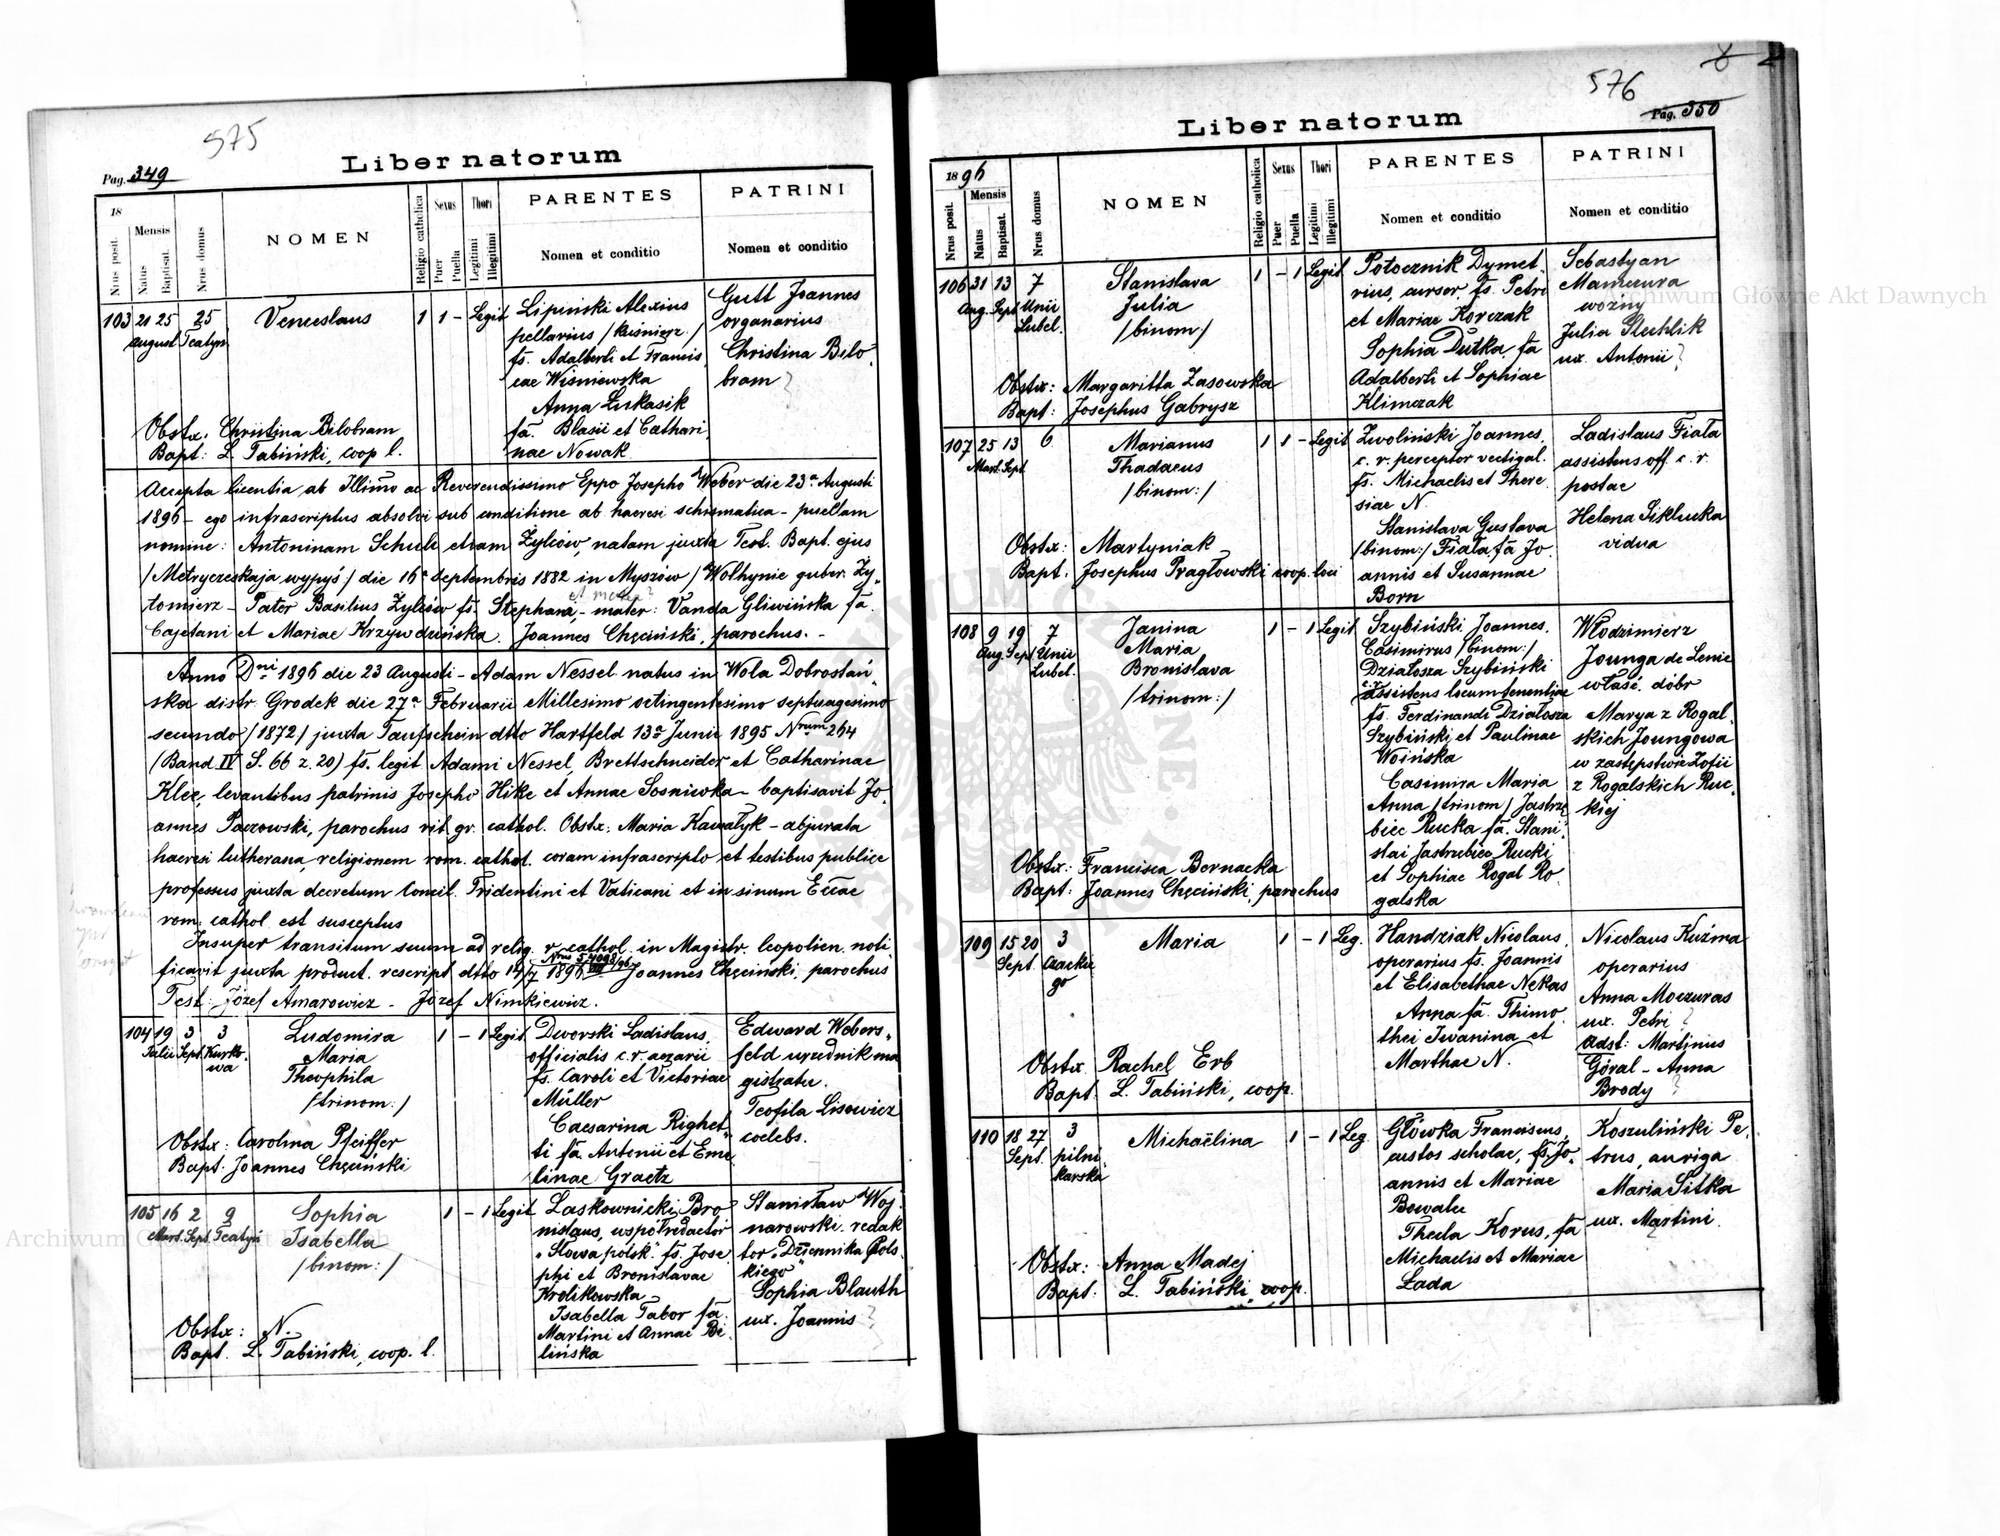 575
Pag. 349
Liber natorum
18
Nrus posit.
Mensis
Natus
Baptisat.
Nrus domus
NOMEN
Religio catholica
Sexus
Puer
Puella
Thori
Legitimi
Illegitimi
PARENTES
Nomen et conditio
PATRINI
Nomen et conditio
103 21 25 25
August Teatyń
Venceslaus
1 1 - Legit
Lipiński Alexius
pellarius /kuśnierz/
fs. Adalberti et Francis
cae Wiśniewska
Anna Łukasik
fa. Blasii et Cathari
nae Nowak
Gutt Joannes
organarius
Christina Bilo
bram ?
Obstx: Christina Bilobram
Bapt: L. Tabiński, coop l.
Accepta licentia ab Illimo ac Reverendissimo Eppo Josepho Weber die 23a Augusti
1896 - ego infrascriptus absolvi sub conditione ab haeresi schismatica - puellam
nomine: Antoninam Schulc etiam Żyliów, natam juxta Test. Bapt. ejus
/Metryczeskaja wypyś/ die 16a Septembris 1882 in Myszów /Wolhynie guber. Ży-
tomierz - Pater Basilius Żyliów fs. Stephana, - mater: Vanda Gliwińska fa.
Cajetani et Mariae Krzywdzińska. Joannes Chęciński, parochus. -
Anno Dni 1896 die 23 Augusti - Adam Nessel natus in Wola Dobrostań-
ska distr. Grodek die 27a Februarii Millesimo octingentesimo septuagesimo
secundo /1872/ juxta Taufschein dtto Hartfeld 13a Junii 1895 Nrum 264
(Band IV S. 66 z. 20) fs. legit Adami Nessel, Brettschneider et Catharinae
Klee, levantibus patrinis Josepho Hike et Annae Sosniwka - baptisavit Jo-
annes Paczowski, parochus rit gr. cathol. Obstx: Maria Kawałyk - abjurata
haeresi lutherana, religionem rom. cathol. coram infrascripto et testibus publice
professus juxta decretum Concil. Tridentini et Vaticani et in sinum Eccae
rom. cathol est susceptus
Insuper transitum suum ad relig. r. cathol. in Magistr. leopolien. noti-
ficavit juxta product. rescript dtto 19/7 1896 Joannes Chęciński, parochus
Test: Józef Amarowicz - Józef Nimkiewicz.
104 19 3 3
Julii Sept. Kurko
wa
Ludomira
Maria
Theophila
/trinom:/
1 - 1 Legit
Dworski Ladislaus,
officialis c. r. aerarii
fs. Caroli et Victoriae
Müller
Caesarina Righet-
ti fa Antonii et Eme
linae Graetz
Edward Webers-
feld urzędnik ma
gistratu.
Teofila Lisowicz
coelebs.
Obstx: Carolina Pfeiffer
Bapt: Joannes Chęciński
105 16 2 9
Mart. Sept. Teatyń
Sophia
Isabella
/binom:/
1 - 1 Legit
Laskownicki Bro
nislaus, współredactor
"Słowa polsk" fs. Jose
phi et Bronislavae
Krolikowska
Isabella Tabor fa
Martini et Annae Bi
lińska
Stanisław Woj
narowski redak
tor "Dziennika Pols
kiego"
Sophia Blauth
ux. Joannis ?
Obstx: N.
Bapt. L. Tabiński, coop. l.
576
Pag. 350
Liber natorum
1896
Nrus posit.
Mensis
Natus
Baptisat.
Nrus domus
NOMEN
Religio catholica
Sexus
Puer
Puella
Thori
Legitimi
Illegitimi
PARENTES
Nomen et conditio
PATRINI
Nomen et conditio
106 31 13 7
Aug. Sept Unii
Lubel.
Stanislava
Julia
/binom:/
1 - 1 Legit
Potocznik Dymet-
rius, cursor, fs. Petri
et Mariae Korczak
Sophia Dutka fa
Adalberti et Sophiae
Klimczak
Sebastyan
Mamczura
woźny
Julia Stechlik
ux. Antonii ?
Obstx: Margaritta Zasowska
Bapt: Josephus Gabrysz
107 25 13 6
Mart. Sept
Marianus
Thadaeus
/binom:/
1 1 - Legit
Zwoliński Joannes,
c. r. perceptor vectigal.
fs. Michaelis et There
siae N.
Stanislava Gustava
/binom:/ Fiala, fa Jo-
annis et Susannae
Born
Ladislaus Fiala
assistens off. c. r.
postae
Helena Siklucka
vidua
Obstx: Martyniak
Bapt: Josephus Pragłowski coop. loci
108 9 19 7
Aug. Sept Unii
Lubel.
Janina
Maria
Bronislava
/trinom:/
1 - 1 Legit
Szybiński Joannes,
Casimirus /binom:/
Działosza Szybiński
assistens locumtenentiae
fs. Ferdinandi Działosza
Szybiński et Paulinae
Woińska
Casimira Maria
Anna /trinom/ Jastrzę
biec Rucka fa. Stani
slai Jastrzębiec Rucki
et Sophiae Rogal Ro-
galska
Włodzimierz
Jounga de Lenie
właść. dóbr
Marya z Rogal-
skich Joungowa
w zastępstwie Zofii
z Rogalskich Ruc-
kiej
Obstx: Francisca Bernacka
Bapt: Joannes Chęciński, parochus
109 15 20 3
Sept. Czacki
go
Maria
1 - 1 Leg.
Handziak Nicolaus,
operarius fs. Joannis
et Elisabethae Nekas
Anna fa. Thimo-
thei Iwanina et
Marthae N.
Nicolaus Kuźma
operarius
Anna Moczuras
ux. Petri ?
Adst: Martinus
Góral - Anna
Brody ?
Obstx. Rachel Erb
Bapt. L. Tabiński, coop.
110 18 27 3
Sept. pilni
karska
Michaëlina
1 - 1 Leg.
Główka Franciscus,
custos scholae, fs. Jo-
annis et Mariae
Bowalec
Thecla Korus, fa
Michaelis et Mariae
Łada
Koszuliński Pe-
trus, auriga
Maria Sitka
ux. Martini
Obstx: Anna Madej
Bapt: L. Tabiński, coop.
Archiwum Główne Akt Dawnych
Archiwum Główne Akt Dawnych